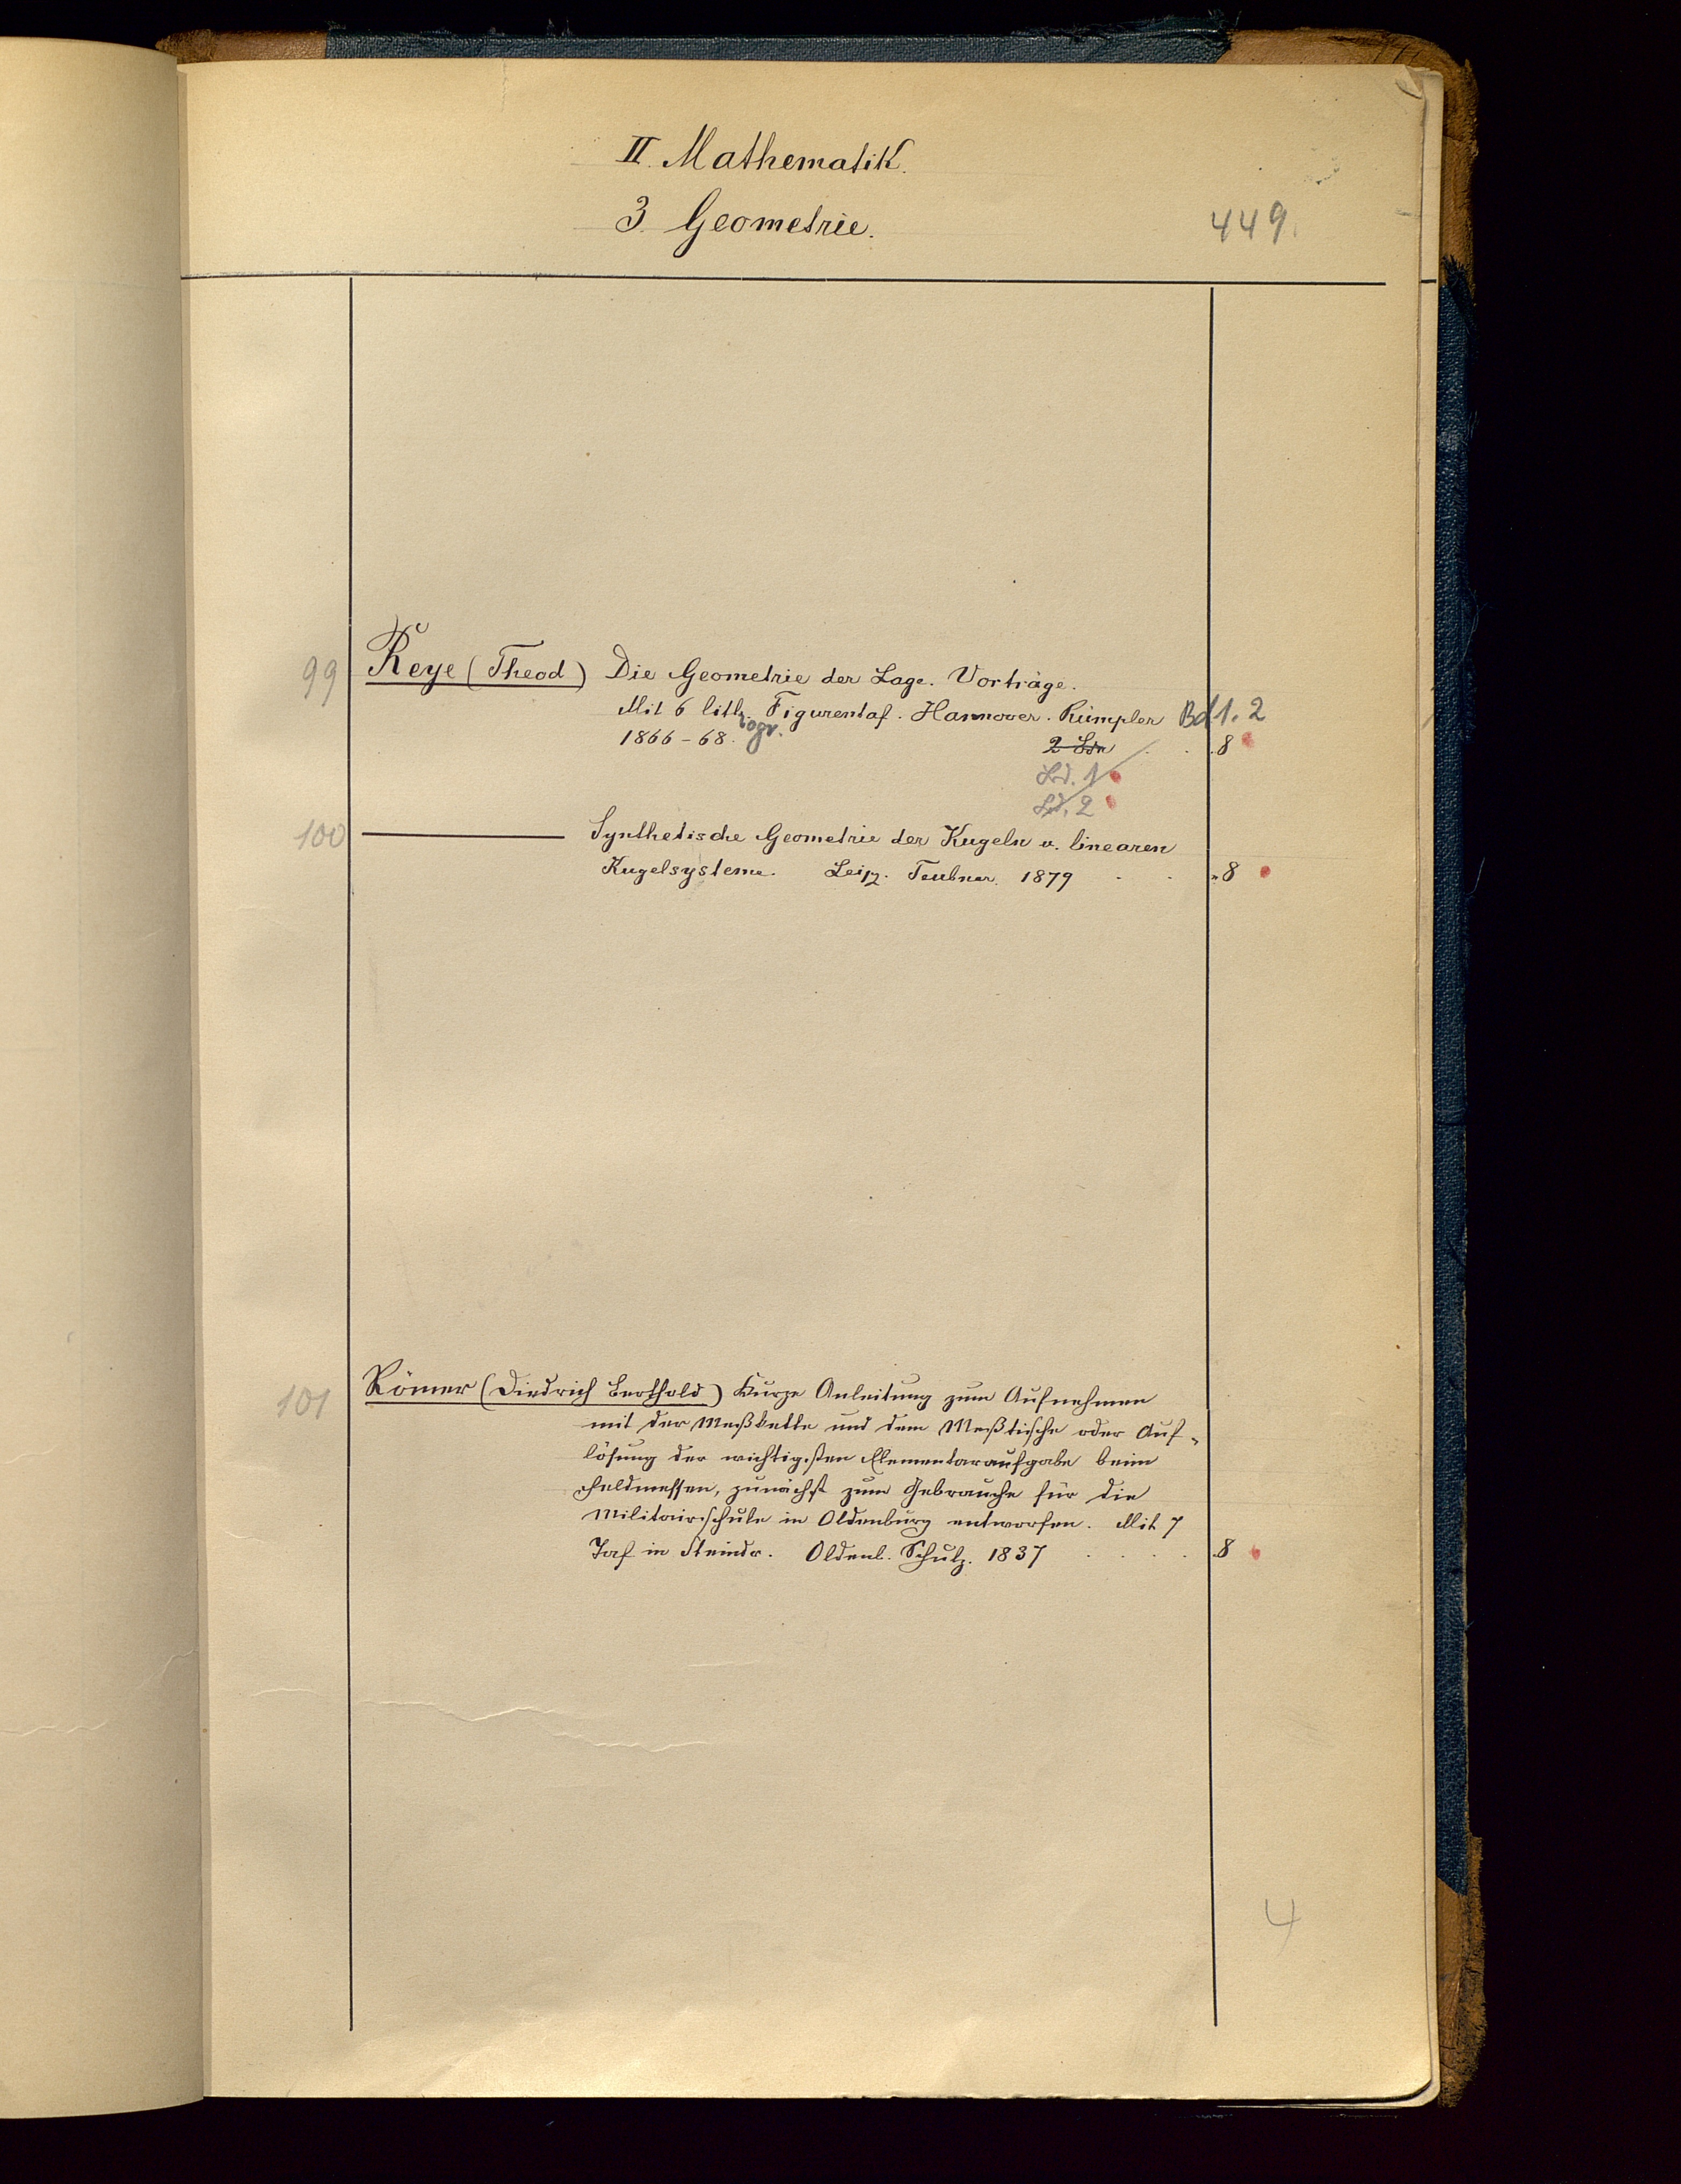 II. Mathematik.
3. Geometrie.
449.
99 Reye (Theod) Die Geometrie der Lage. Vorträge.
Mit 6 lith. Figurentaf. Hannover. Rümpler Bd 1. 2
ogr.
1866-68. 2 Bde . . 8
Bd. 1
Bd. 2
100 Synthetische Geometrie der Kugeln u. linearen
Kugelsysteme. Leipz. Teubner. 1879 . . „8
101 Römer (Diedrich Berthold) Kurze Anleitung zum Aufnehmen
mit der Meßkette und dem Meßtische oder Auf-
lösung der wichtigsten Elementaraufgabe beim
Feldmessen, zunächst zum Gebrauche für die
Militairschule in Oldenburg entworfen. Mit 7
Taf in Steindr. Oldenb. Schulz. 1837 . . . . 8
4